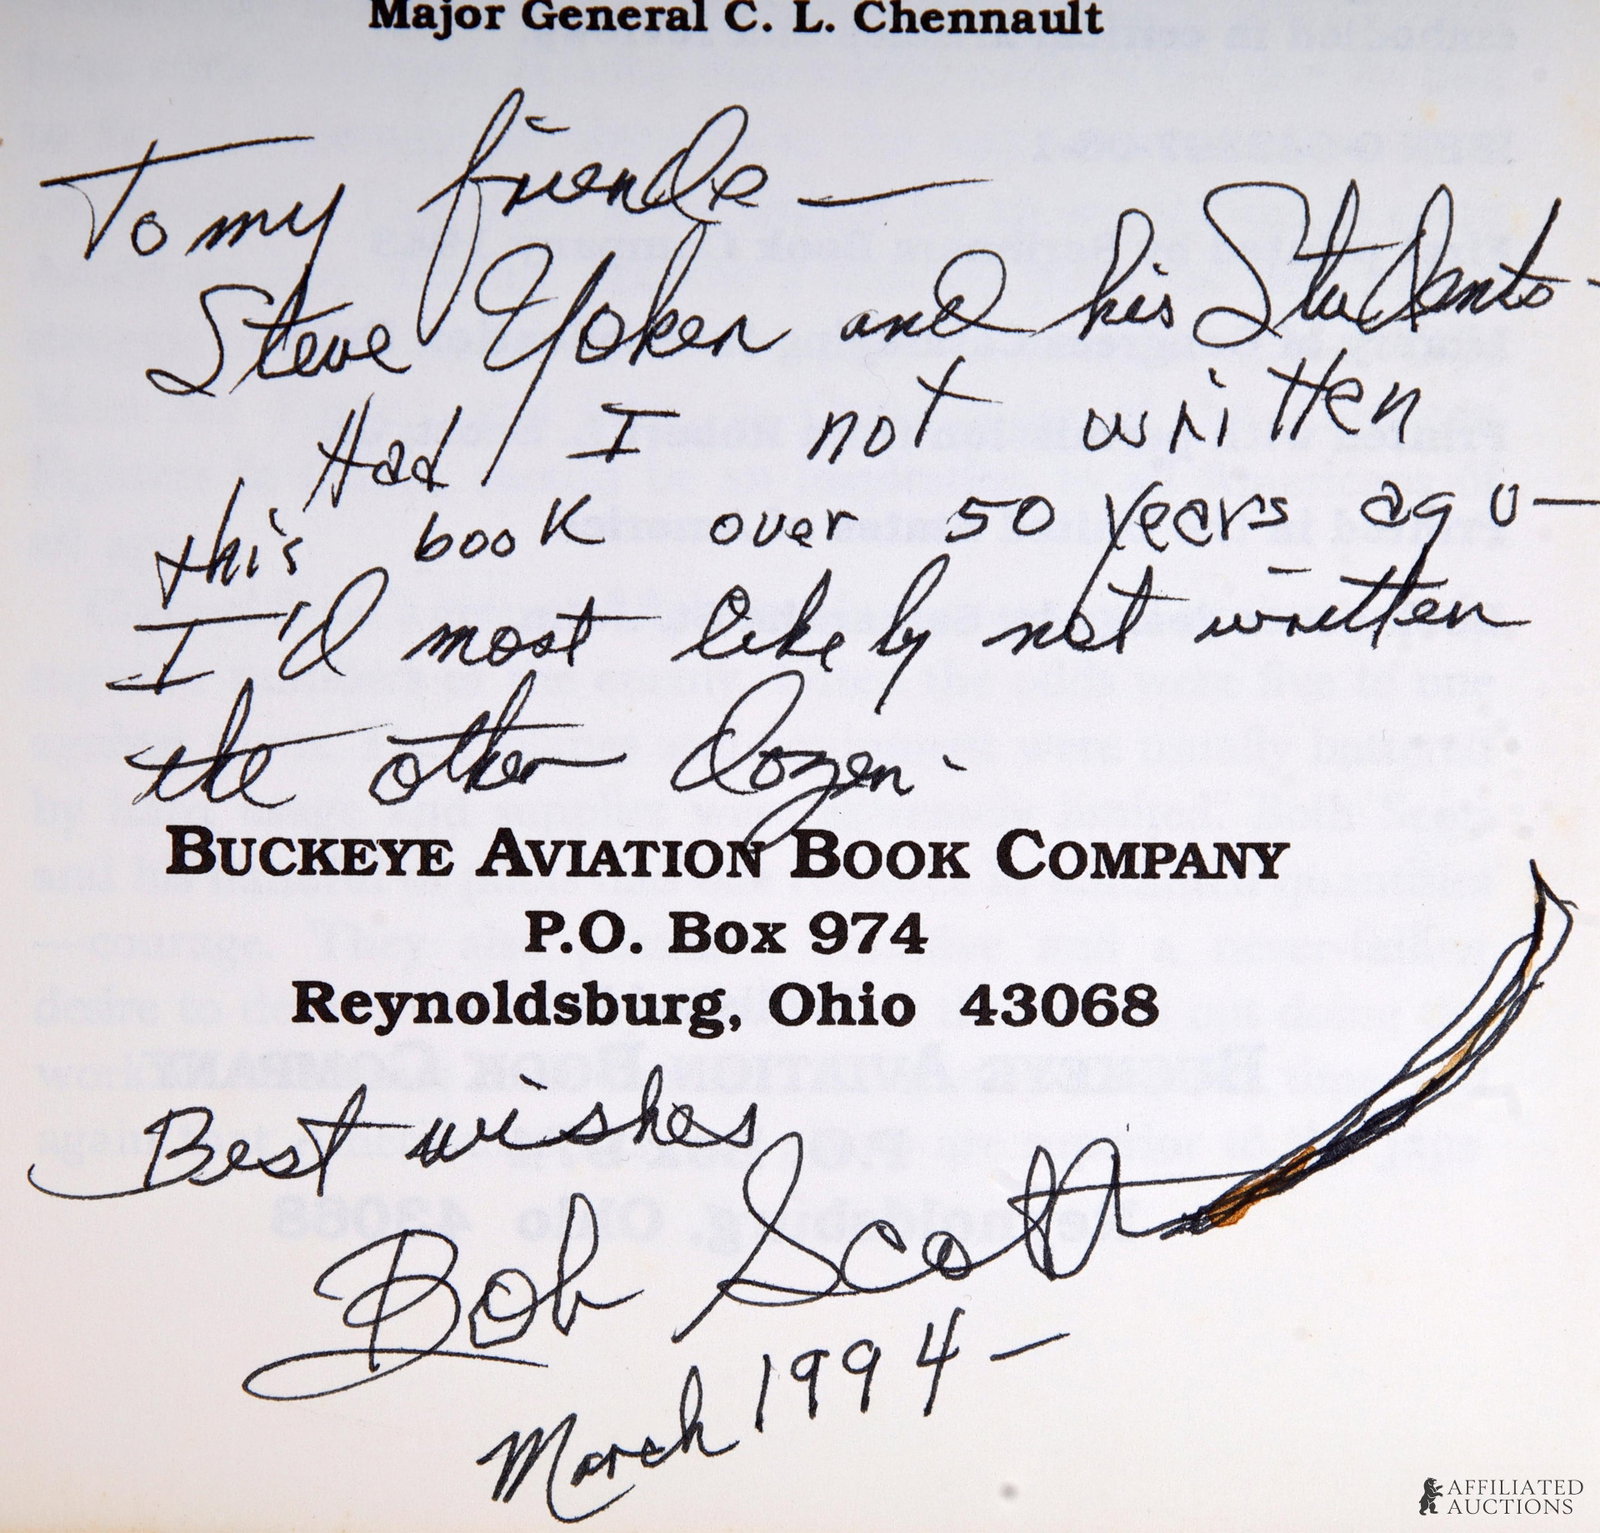 Major General C. L. Chennault
To my friends —
Steve Yoken and his Students -
Had I not written
this book over 50 years ago —
I'd most likely not written
the other dozen -
BUCKEYE AVIATION BOOK COMPANY
P.O. Box 974
Reynoldsburg, Ohio 43068
Best wishes
Bob Scott
March 1994 -
AFFILIATED
AUCTIONS